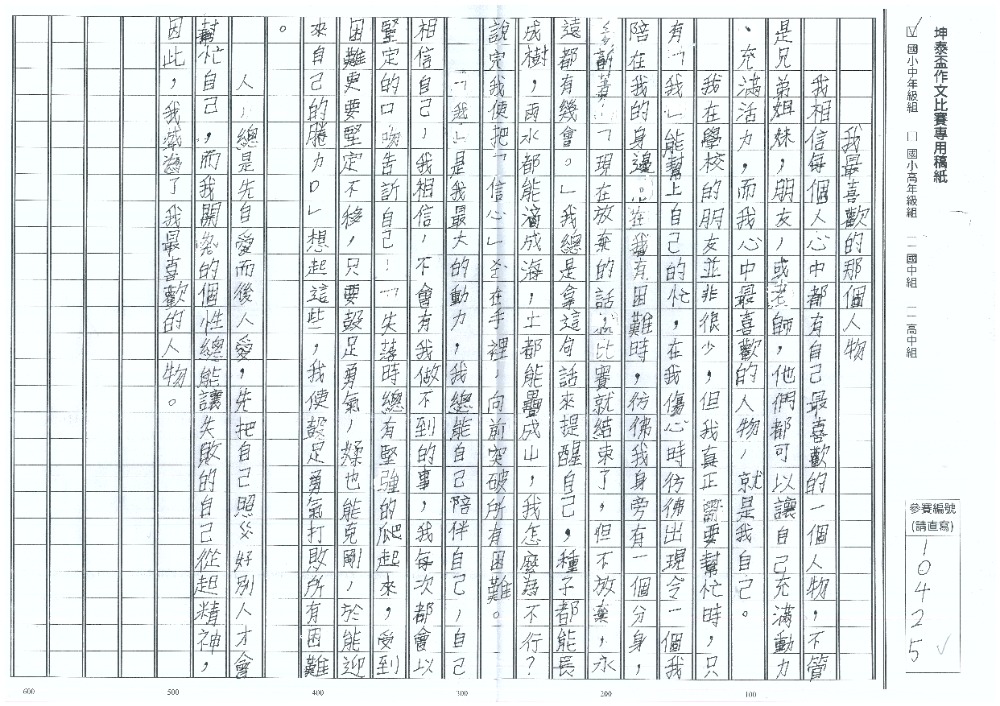 坤泰盃作文比賽專用稿紙
國小中年級組 國小高年級組 國中組 高中組
參賽編號
(請直寫)
10425
我最喜歡的那個人物
我相信每個人心中都有自己最喜歡的一個人物,不管
是兄弟姐妹,朋友,或老師,他們都可以讓自己充滿動力
、充滿活力,而我心中最喜歡的人物,就是我自己。
我在學校的朋友並非很少,但我真正需要幫忙時,只
有「我」能幫上自己的忙,在我傷心時彷彿出現令一個我
陪在我的身邊。在我有困難時,彷彿我身旁有一個分身,
「現在放棄的話,比賽就結束了,但不放棄,永
遠都有幾會。」我總是拿這句話來提醒自己,種子都能長
成樹,雨水都能滴成海,土都能疊成山,我怎麼為不行?
說完我便把「信心」在手裡,向前突破所有困難。
「我」是我最大的動力,我總能自己陪伴自己,自己
相信自己,我相信,不會有我做不到的事,我每次都會以
堅定的口吻告訴自己!「失落時總有堅強的爬起來,受到
困難更要堅定不移,只要鼓足勇氣,柔也能克剛,於能迎
來自己的勝力口」想起這些,我便鼓足勇氣打敗所有困難
。
人,總是先自愛而後人愛,先把自己照災好別人才會
幫忙自己,而我開努的個性總能讓失敗的自己從起精神,
因此,我我最喜歡的人物。
100
200
300
400
500
600